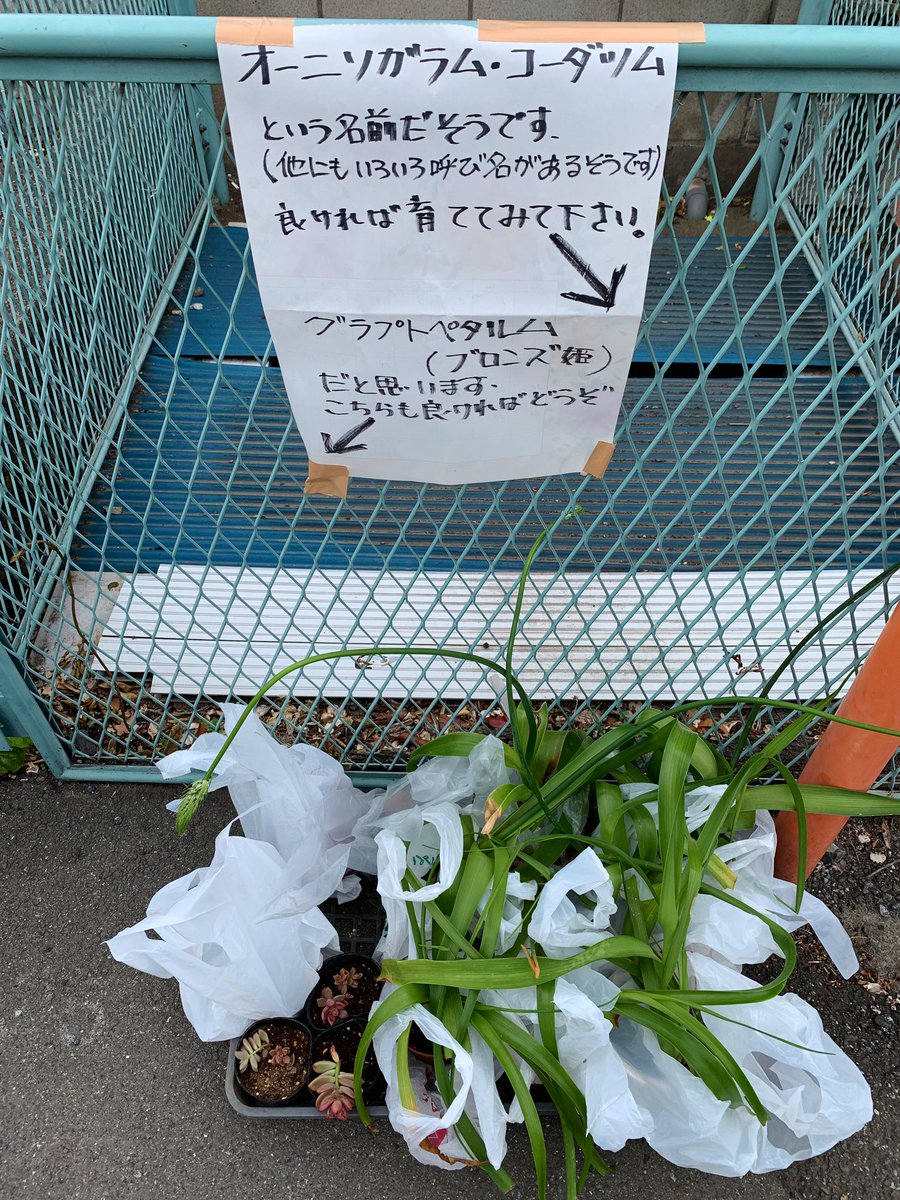 オーニソガラム・コーダツム
という名前だそうです.
(他にもいろいろ呼び名があるそうです)
良ければ育ててみて下さい!
グラプトペタルム
(ブロンズ姫)
だと思います.
こちらも良ければどうぞ